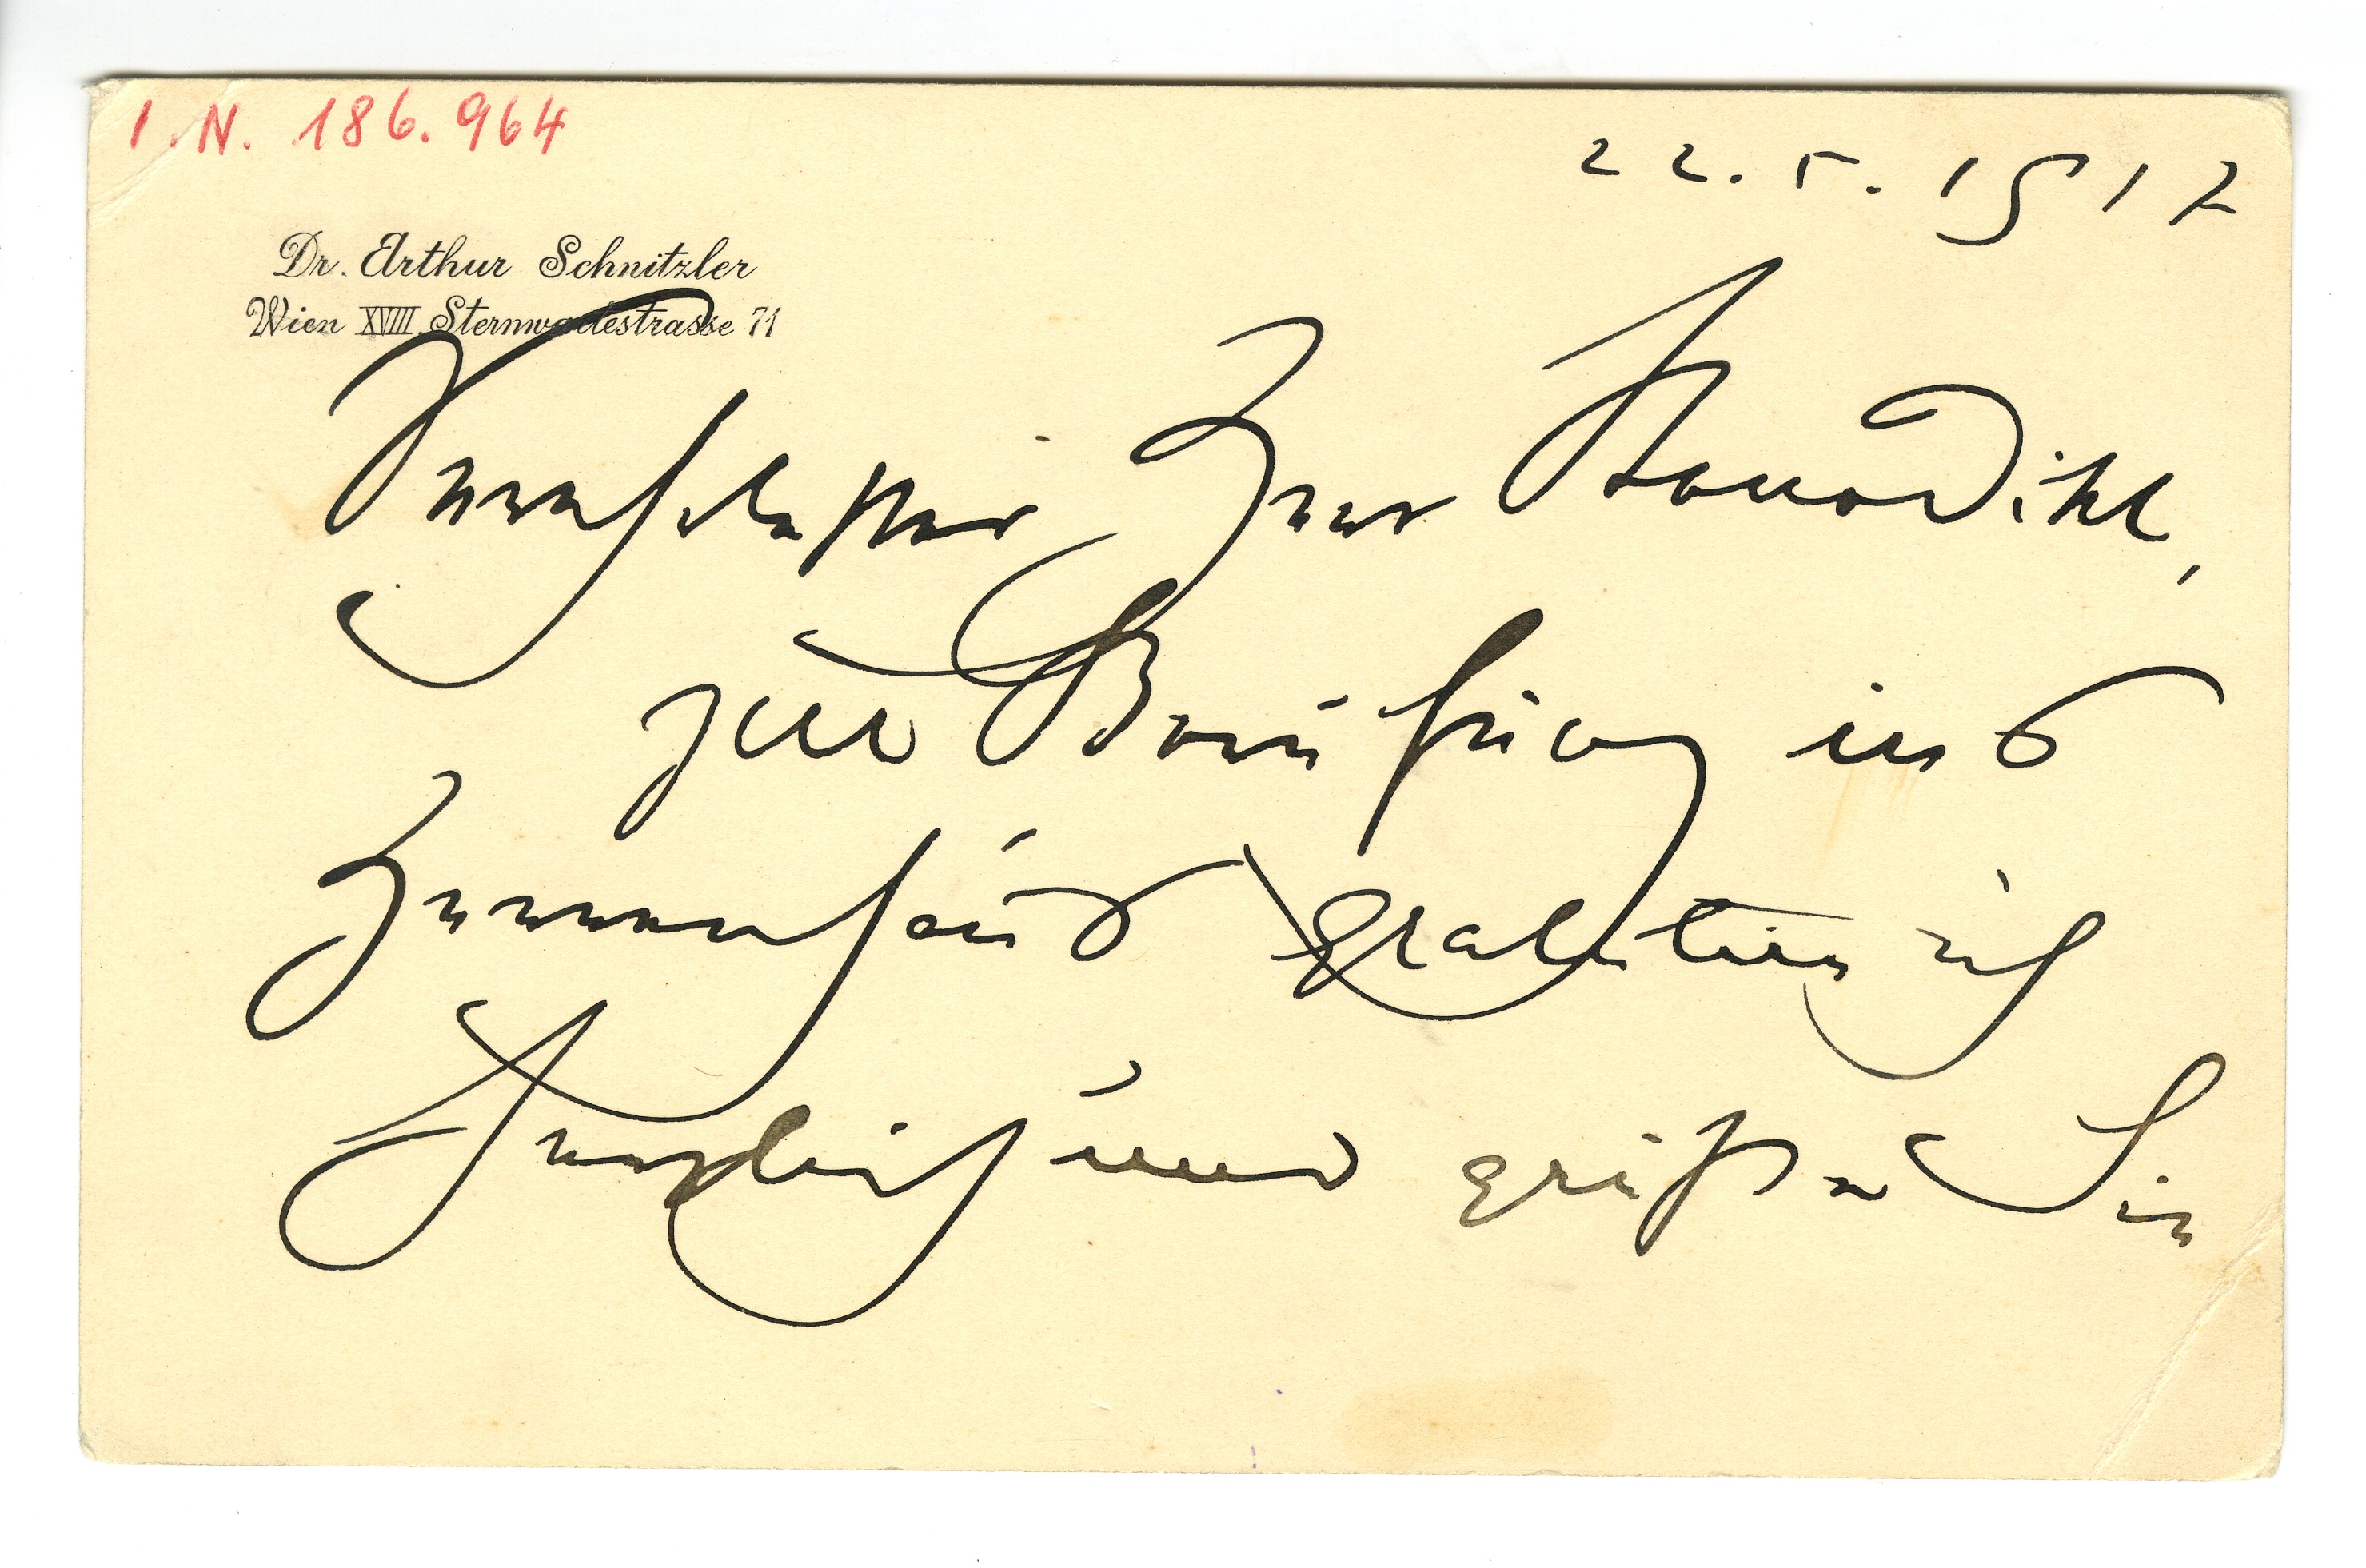 I. N. 186.964
22. 5. 1917
Dr. Arthur Schnitzler
Wien XVIII. Sternwartestrasse 71
Verehrtester Herr Benedikt,
zur Berufung ins
Herrenhaus gratulire ich
herzlich und grüße Sie